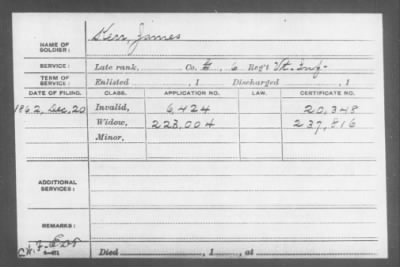 Kerr, James
NAME OF
SOLDIER:
SERVICE:
Late rank, Co. 6 Reg't Vt. Inf-
TERM OF
SERVICE:
Enlisted , 1 Discharged , 1
DATE OF FILING. CLASS. APPLICATION NO. LAW. CERTIFICATE NO.
1862, Dec, 20 Invalid, 6,424 20,348
Widow, 223,004 237,816
Minor,
ADDITIONAL
SERVICES:
REMARKS:
Died , 1 , at